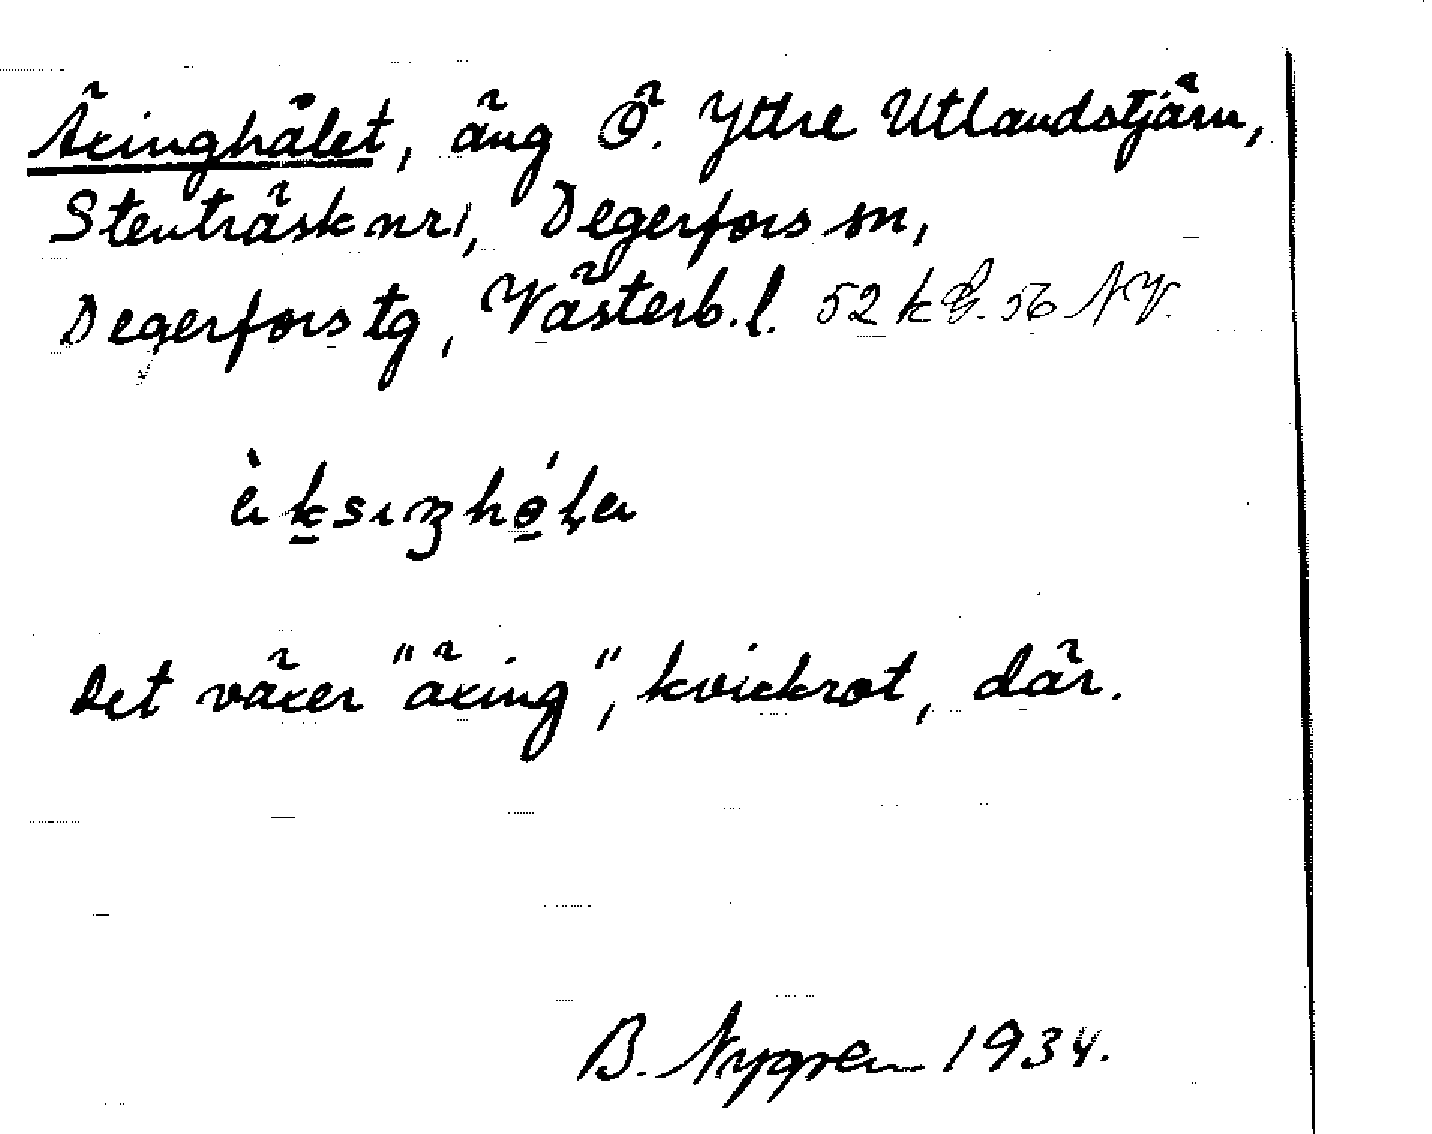 Äxinghålet, äng Ö. Yttre Utlandstjärn,
Stenträsk nr 1, Degerfors sn,
Degerfors tg, Västerb. l. 52 k 56 NV.
Det växer "äxing", kvickrot, där.
B. Nygren 1934.